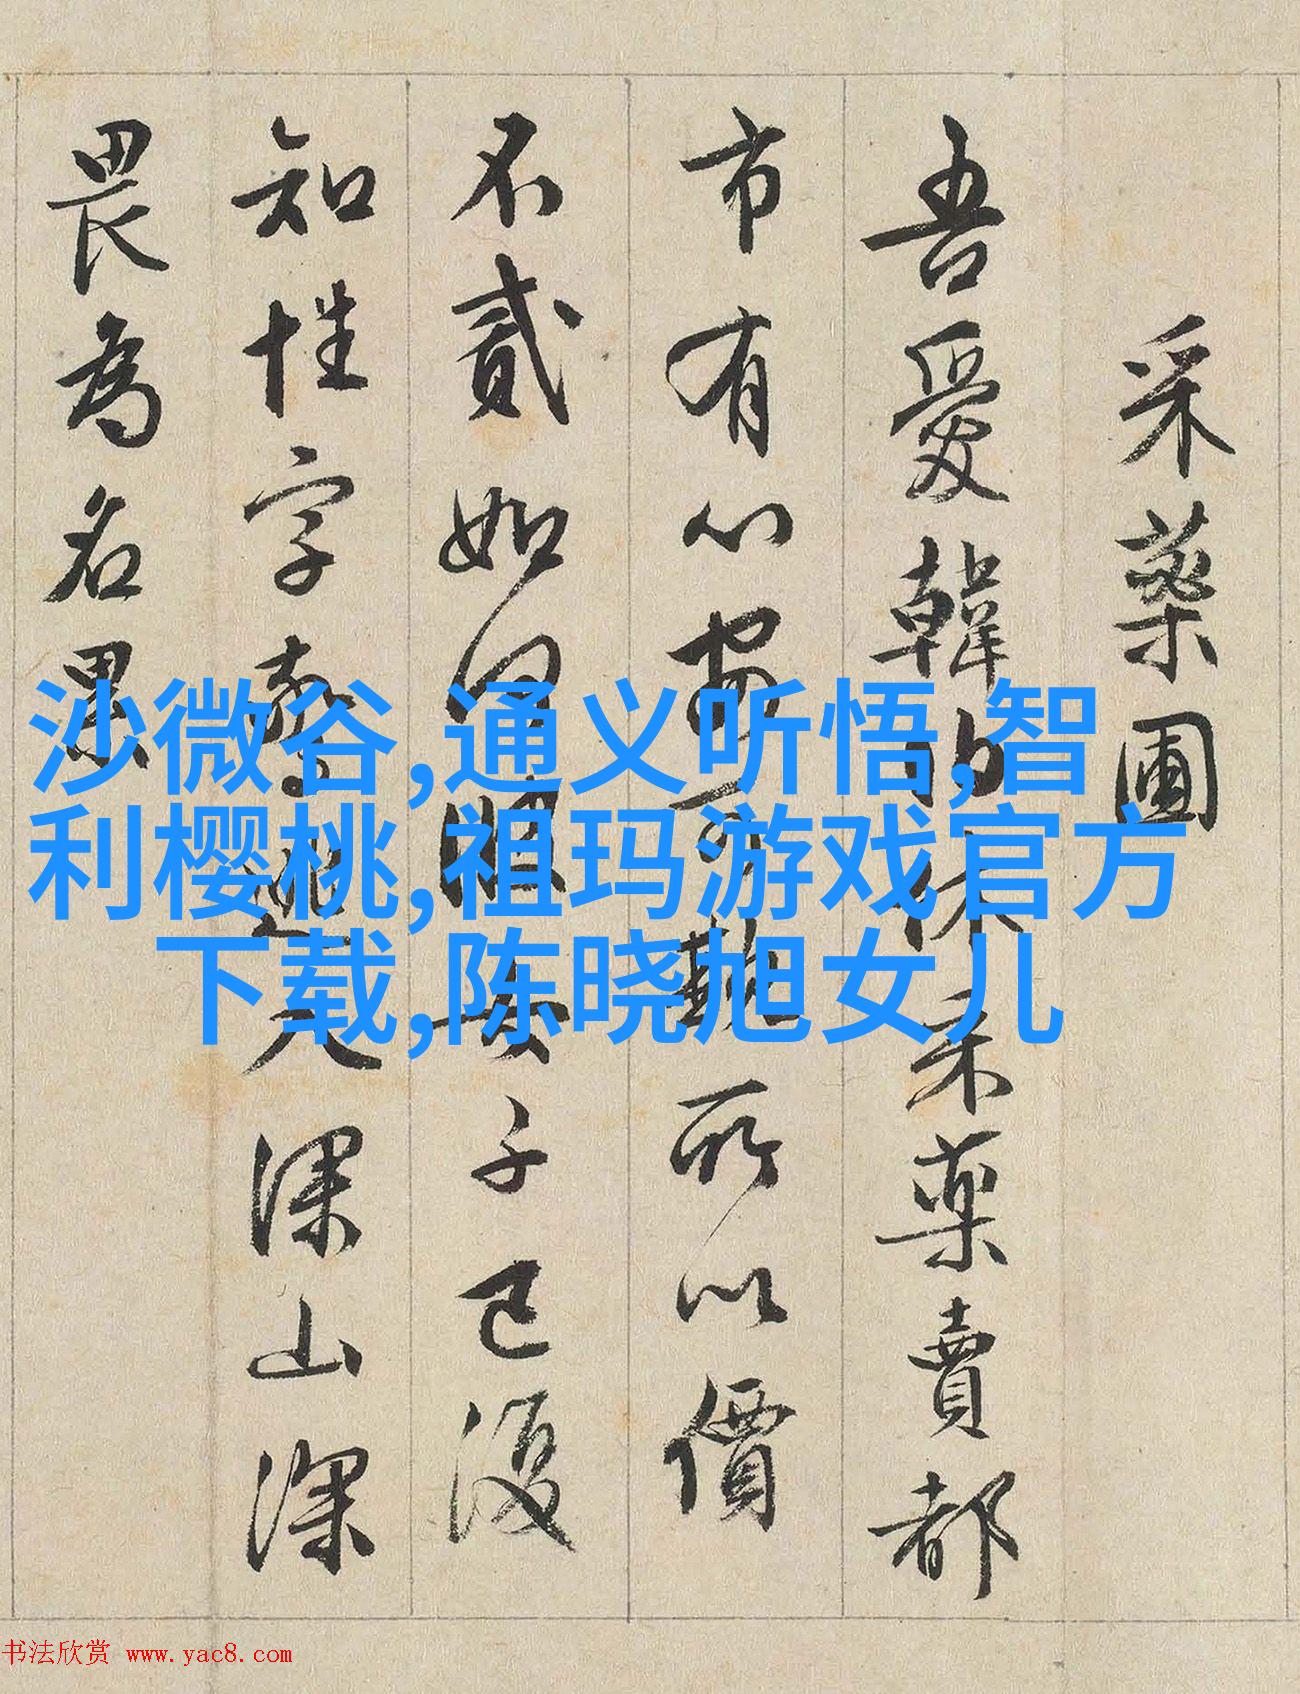 采藥圃
吾愛韓伯休采藥賣都
市有心安可欺所以價
不貳如何明女子已復
知姓字驚逃入深山深
畏為名累
沙微谷,通义听悟,智
利樱桃,祖玛游戏官方
下载,陈晓旭女儿
书法欣赏 www.yac8.com